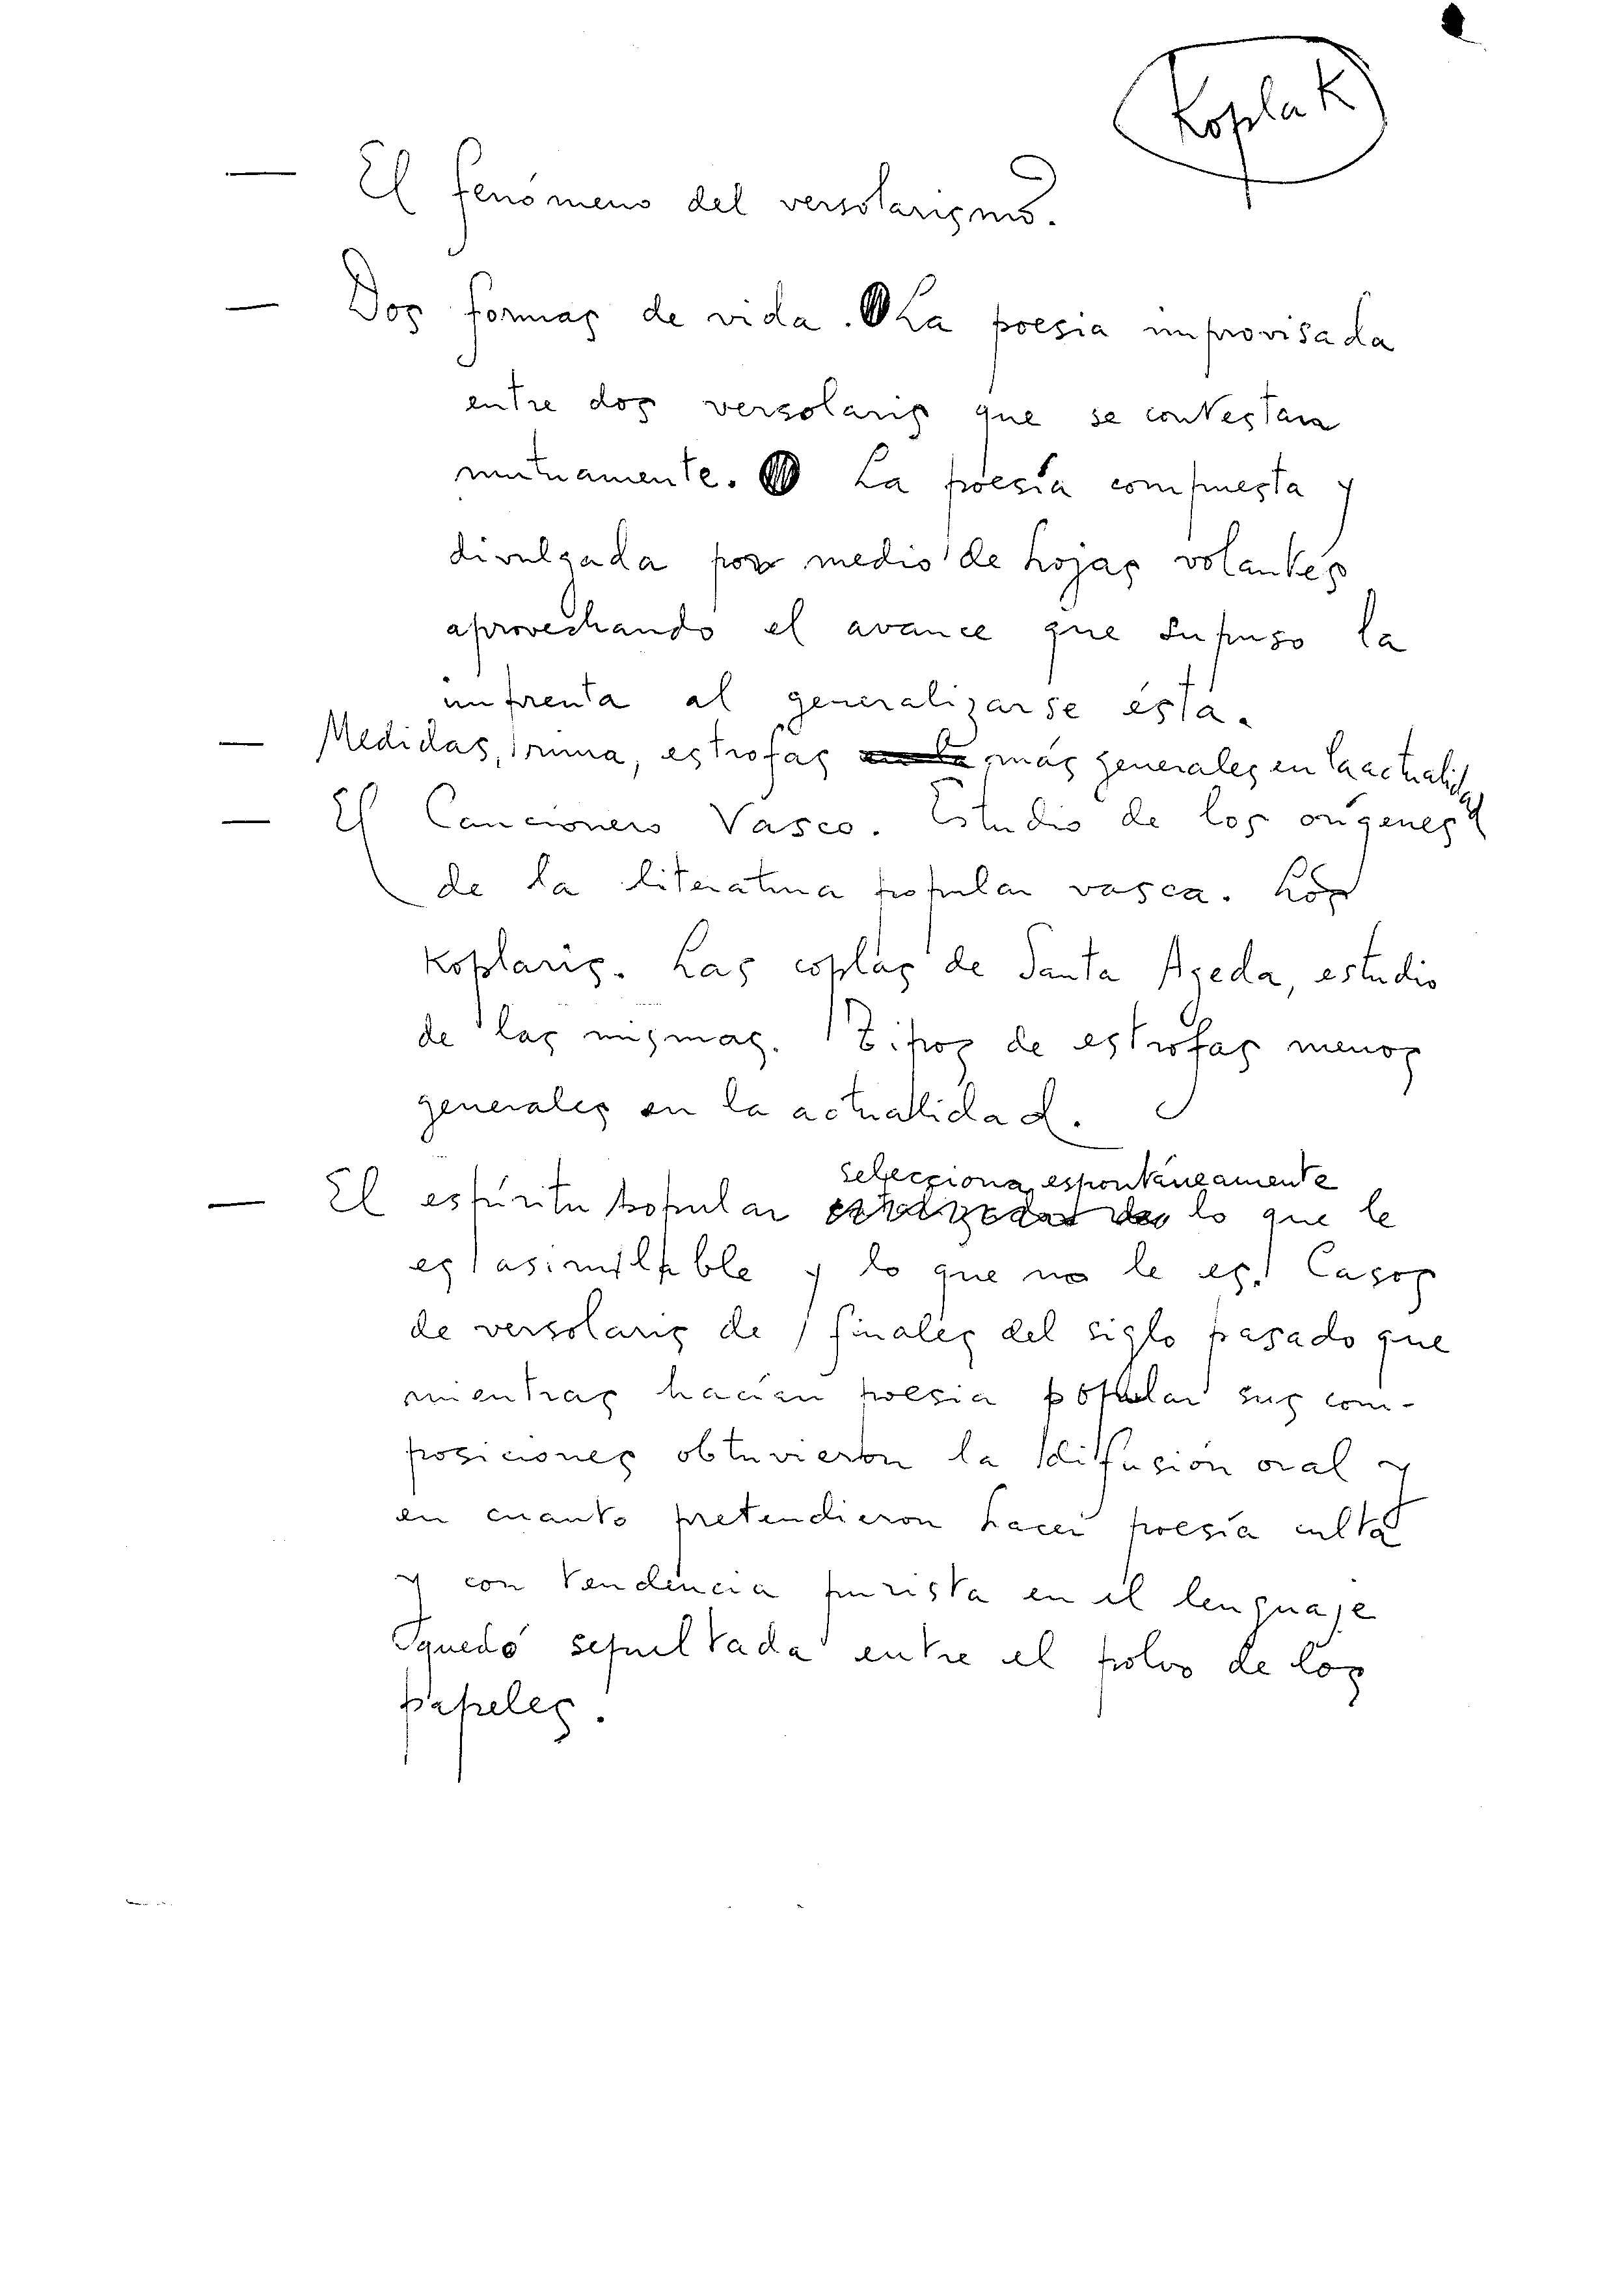 Koplak
— El fenómeno del versolarismo.
— Dos formas de vida. La poesia improvisada
entre dos versolaris que se contestan
mutuamente. La poesía compuesta y
divulgada por medio de hojas volantes
aprovechando el avance que supuso la
imprenta al generalizarse ésta.
— Medidas, rima, estrofas más generales en la actualidad
— El Cancionero Vasco. Estudio de los orígenes
de la literatura popular vasca. Los
koplaris. Las coplas de Santa Ageda, estudio
de las mismas. Tipos de estrofas menos
generales en la actualidad.
selecciona espontáneamente
— El espíritu popular lo que le
es asimilable y lo que no le es. Casos
de versolaris de finales del siglo pasado que
mientras hacían poesia popular sus com-
posiciones obtuvieron la difusión oral y
en cuanto pretendieron hacer poesía culta
y con tendencia purista en el lenguaje
quedó sepultada entre el polvo de los
papeles.